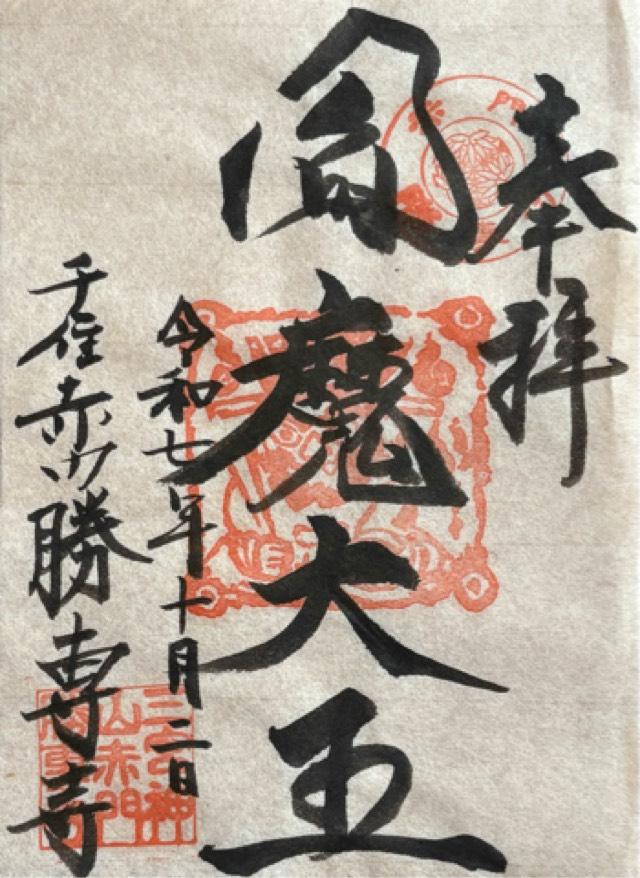 奉拝
閻魔大王
令和七年十月二日
千住赤門勝専寺
三宮神
山赤門
勝専寺